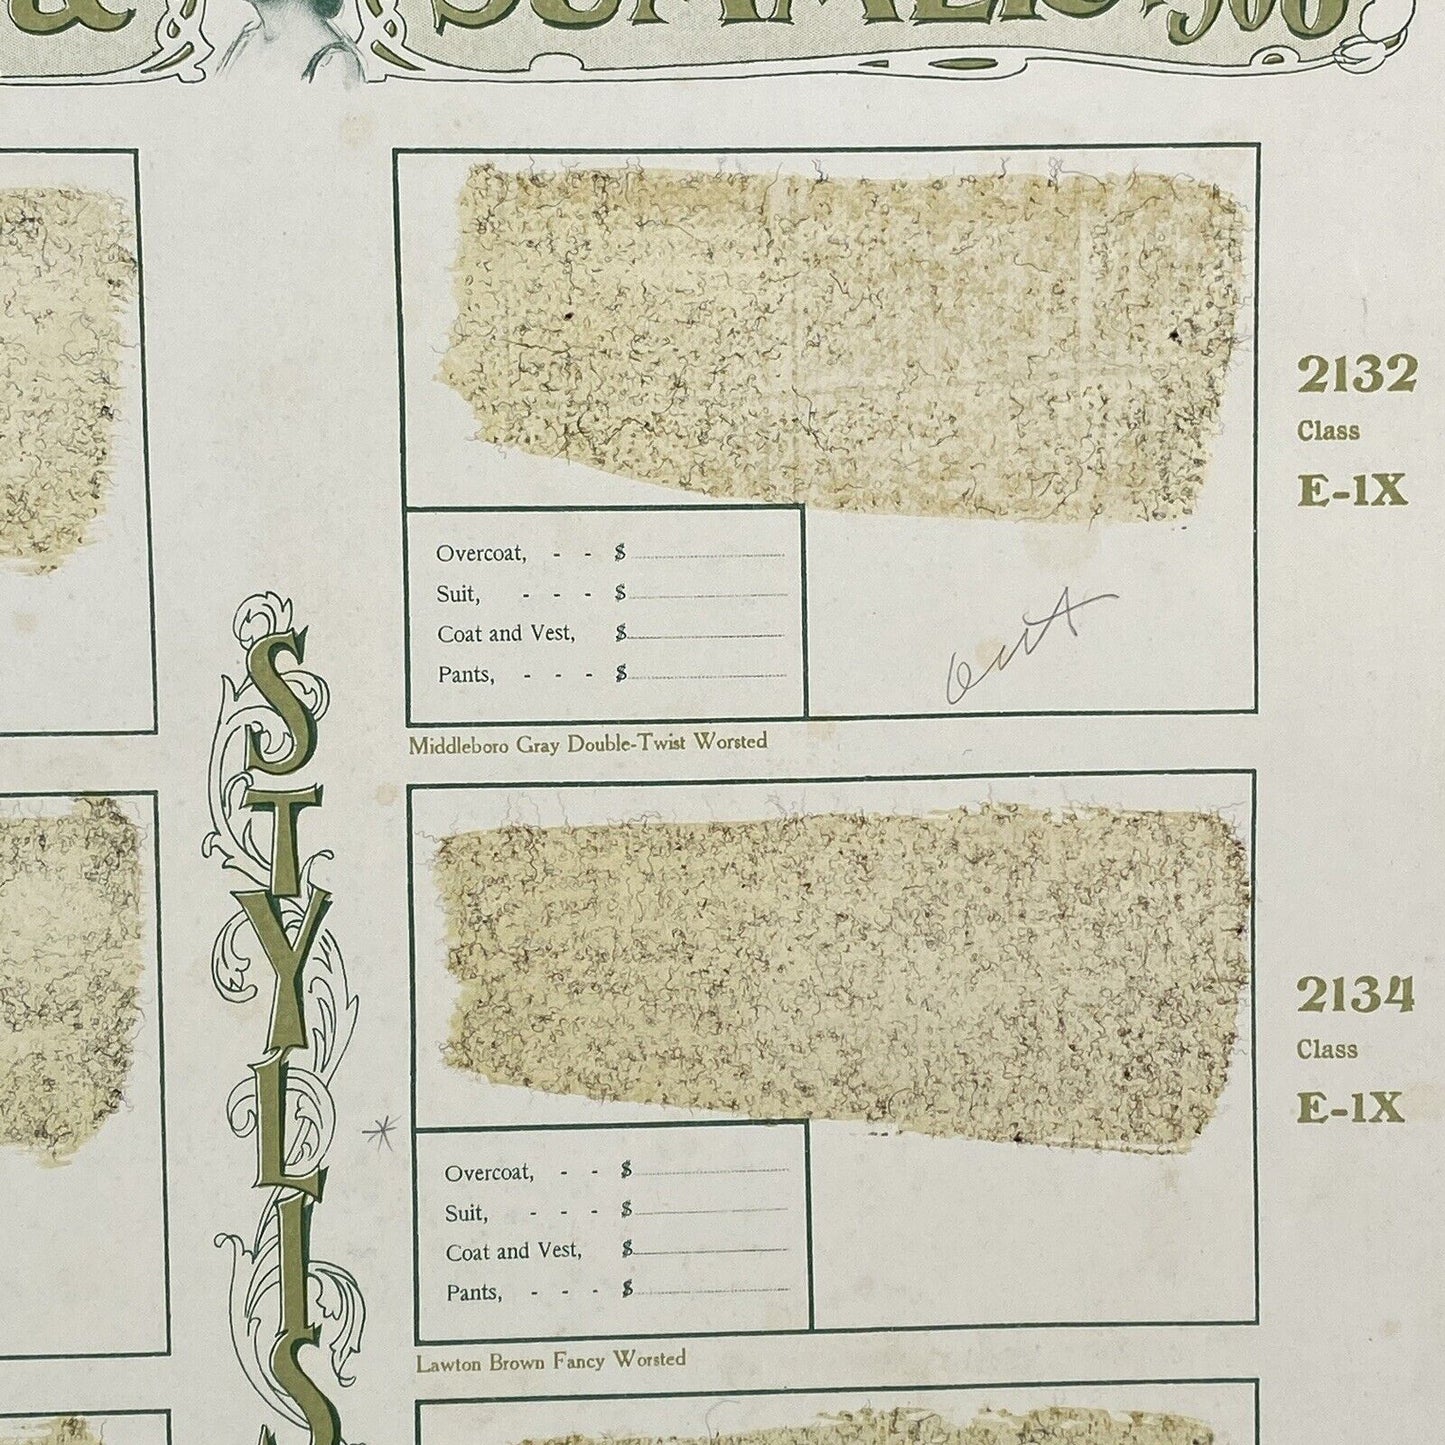 & SUMMER 1906
2132
Class
E-1X
Overcoat, - - $
Suit, - - - $
Coat and Vest, $
Pants, - - - $
out
Middleboro Gray Double-Twist Worsted
STYLES
2134
Class
E-1X
*
Overcoat, - - $
Suit, - - - $
Coat and Vest, $
Pants, - - - $
Lawton Brown Fancy Worsted